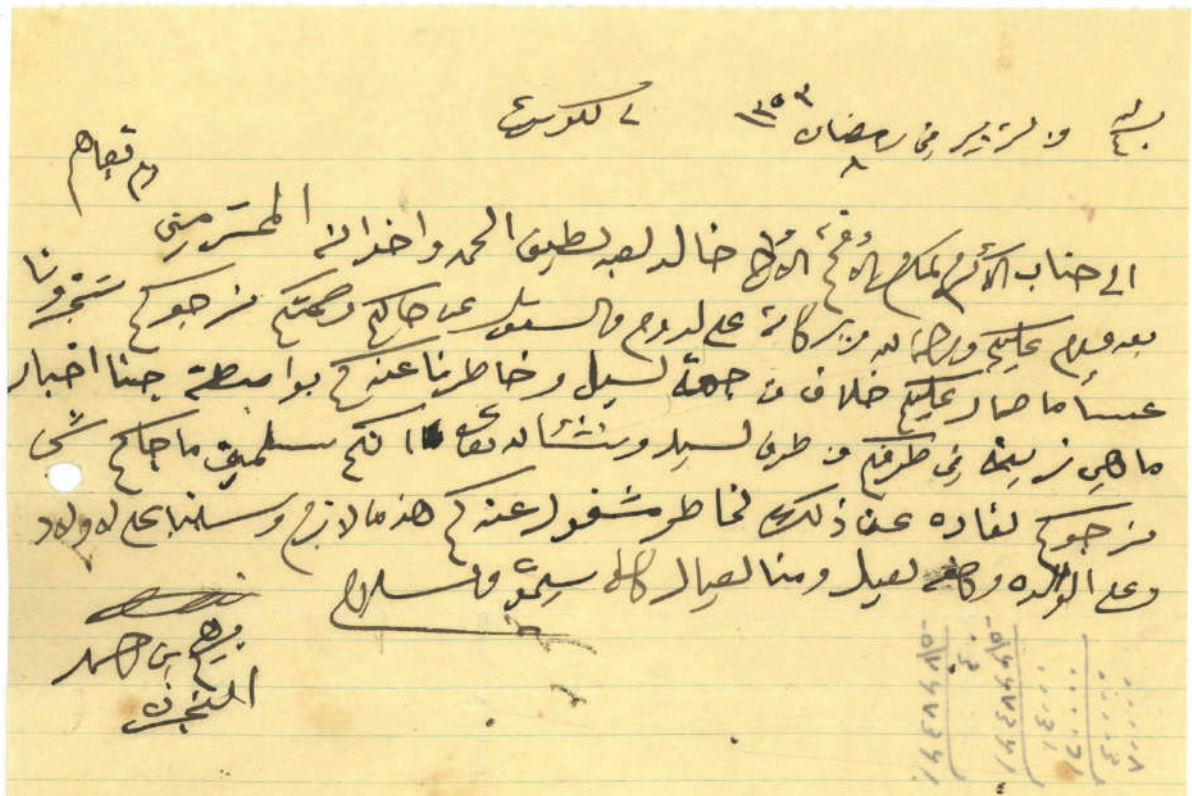 من الزبير في ٨ رمضان ١٣٥٣ الكويت
دام بقاهم
الى جناب الأكرم المكرم الأفخم الأخ خالد العبد اللطيف الحمد واخوانه المحترمين
بعد السلام عليكم ورحمة الله وبركاته على الدوام والسؤال عن حالكم وصحتكم نرجوكم تخبرونا
عسا ما صار عليكم خلاف من جهة السيل وخاطرنا عندكم بواسطة جتنا اخبار
ما هي زينه في طرفكم من طرف السيل ونسئل الله تعالى انكم سالمين ما جاكم شي
نرجوكم افاده عن ذلك الخاطر مشغول عندكم هذا ما لازم وسلمنا على الاولاد
وعلى الوالده وكافة العيال ومنا العيال كافة والسلام
بن حمد